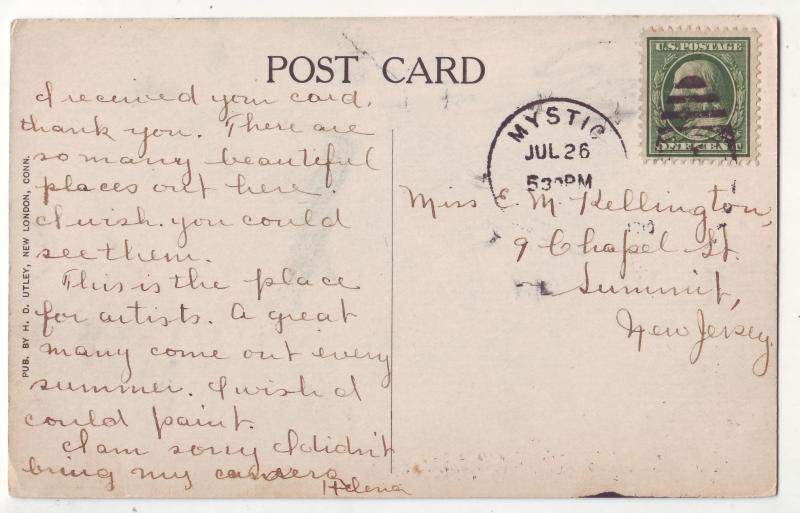 POST CARD
I received your card,
thank you. There are
so many beautiful
places out here.
I wish you could
see them.
This is the place
for artists. A great
many come out every
summer. I wish I
could paint.
I am sorry I didn't
bring my camera
Helena
PUB. BY H. D. UTLEY, NEW LONDON, CONN.
U.S. POSTAGE
ONE CENT
MYSTIC
JUL 26
530PM
Miss E. M. Kellington,
9 Chapel St.
Summit,
New Jersey.